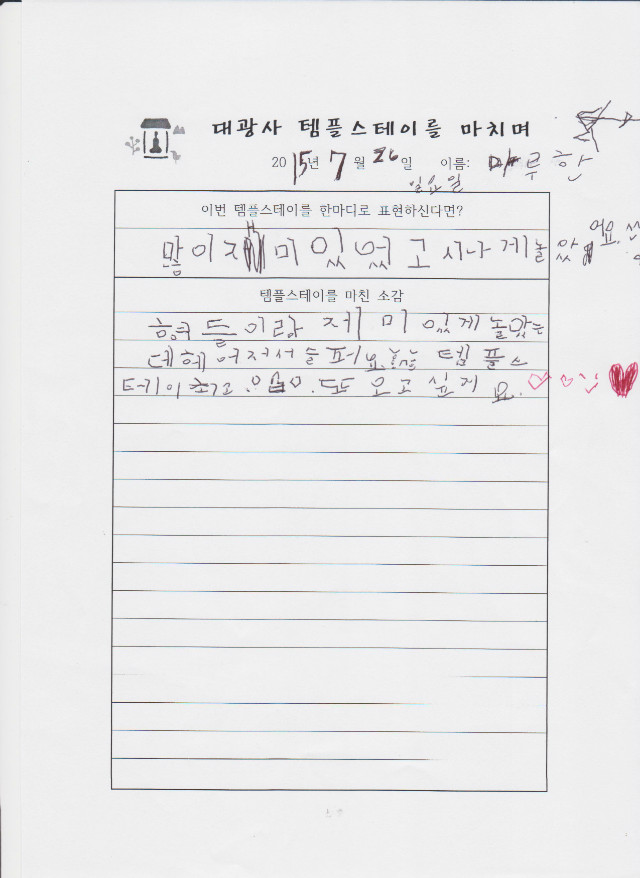 대광사 템플스테이를 마치며
2015년 7월 26일 이름: 마루한
일요일
이번 템플스테이를 한마디로 표현하신다면?
많이 재미있었고 시나게 놀았
어요.
템플스테이를 마친 소감
형들이랑 재미있게 놀았는
데 헤어저서 슬퍼요. 템플스
테이 또 오고 싶게 요.